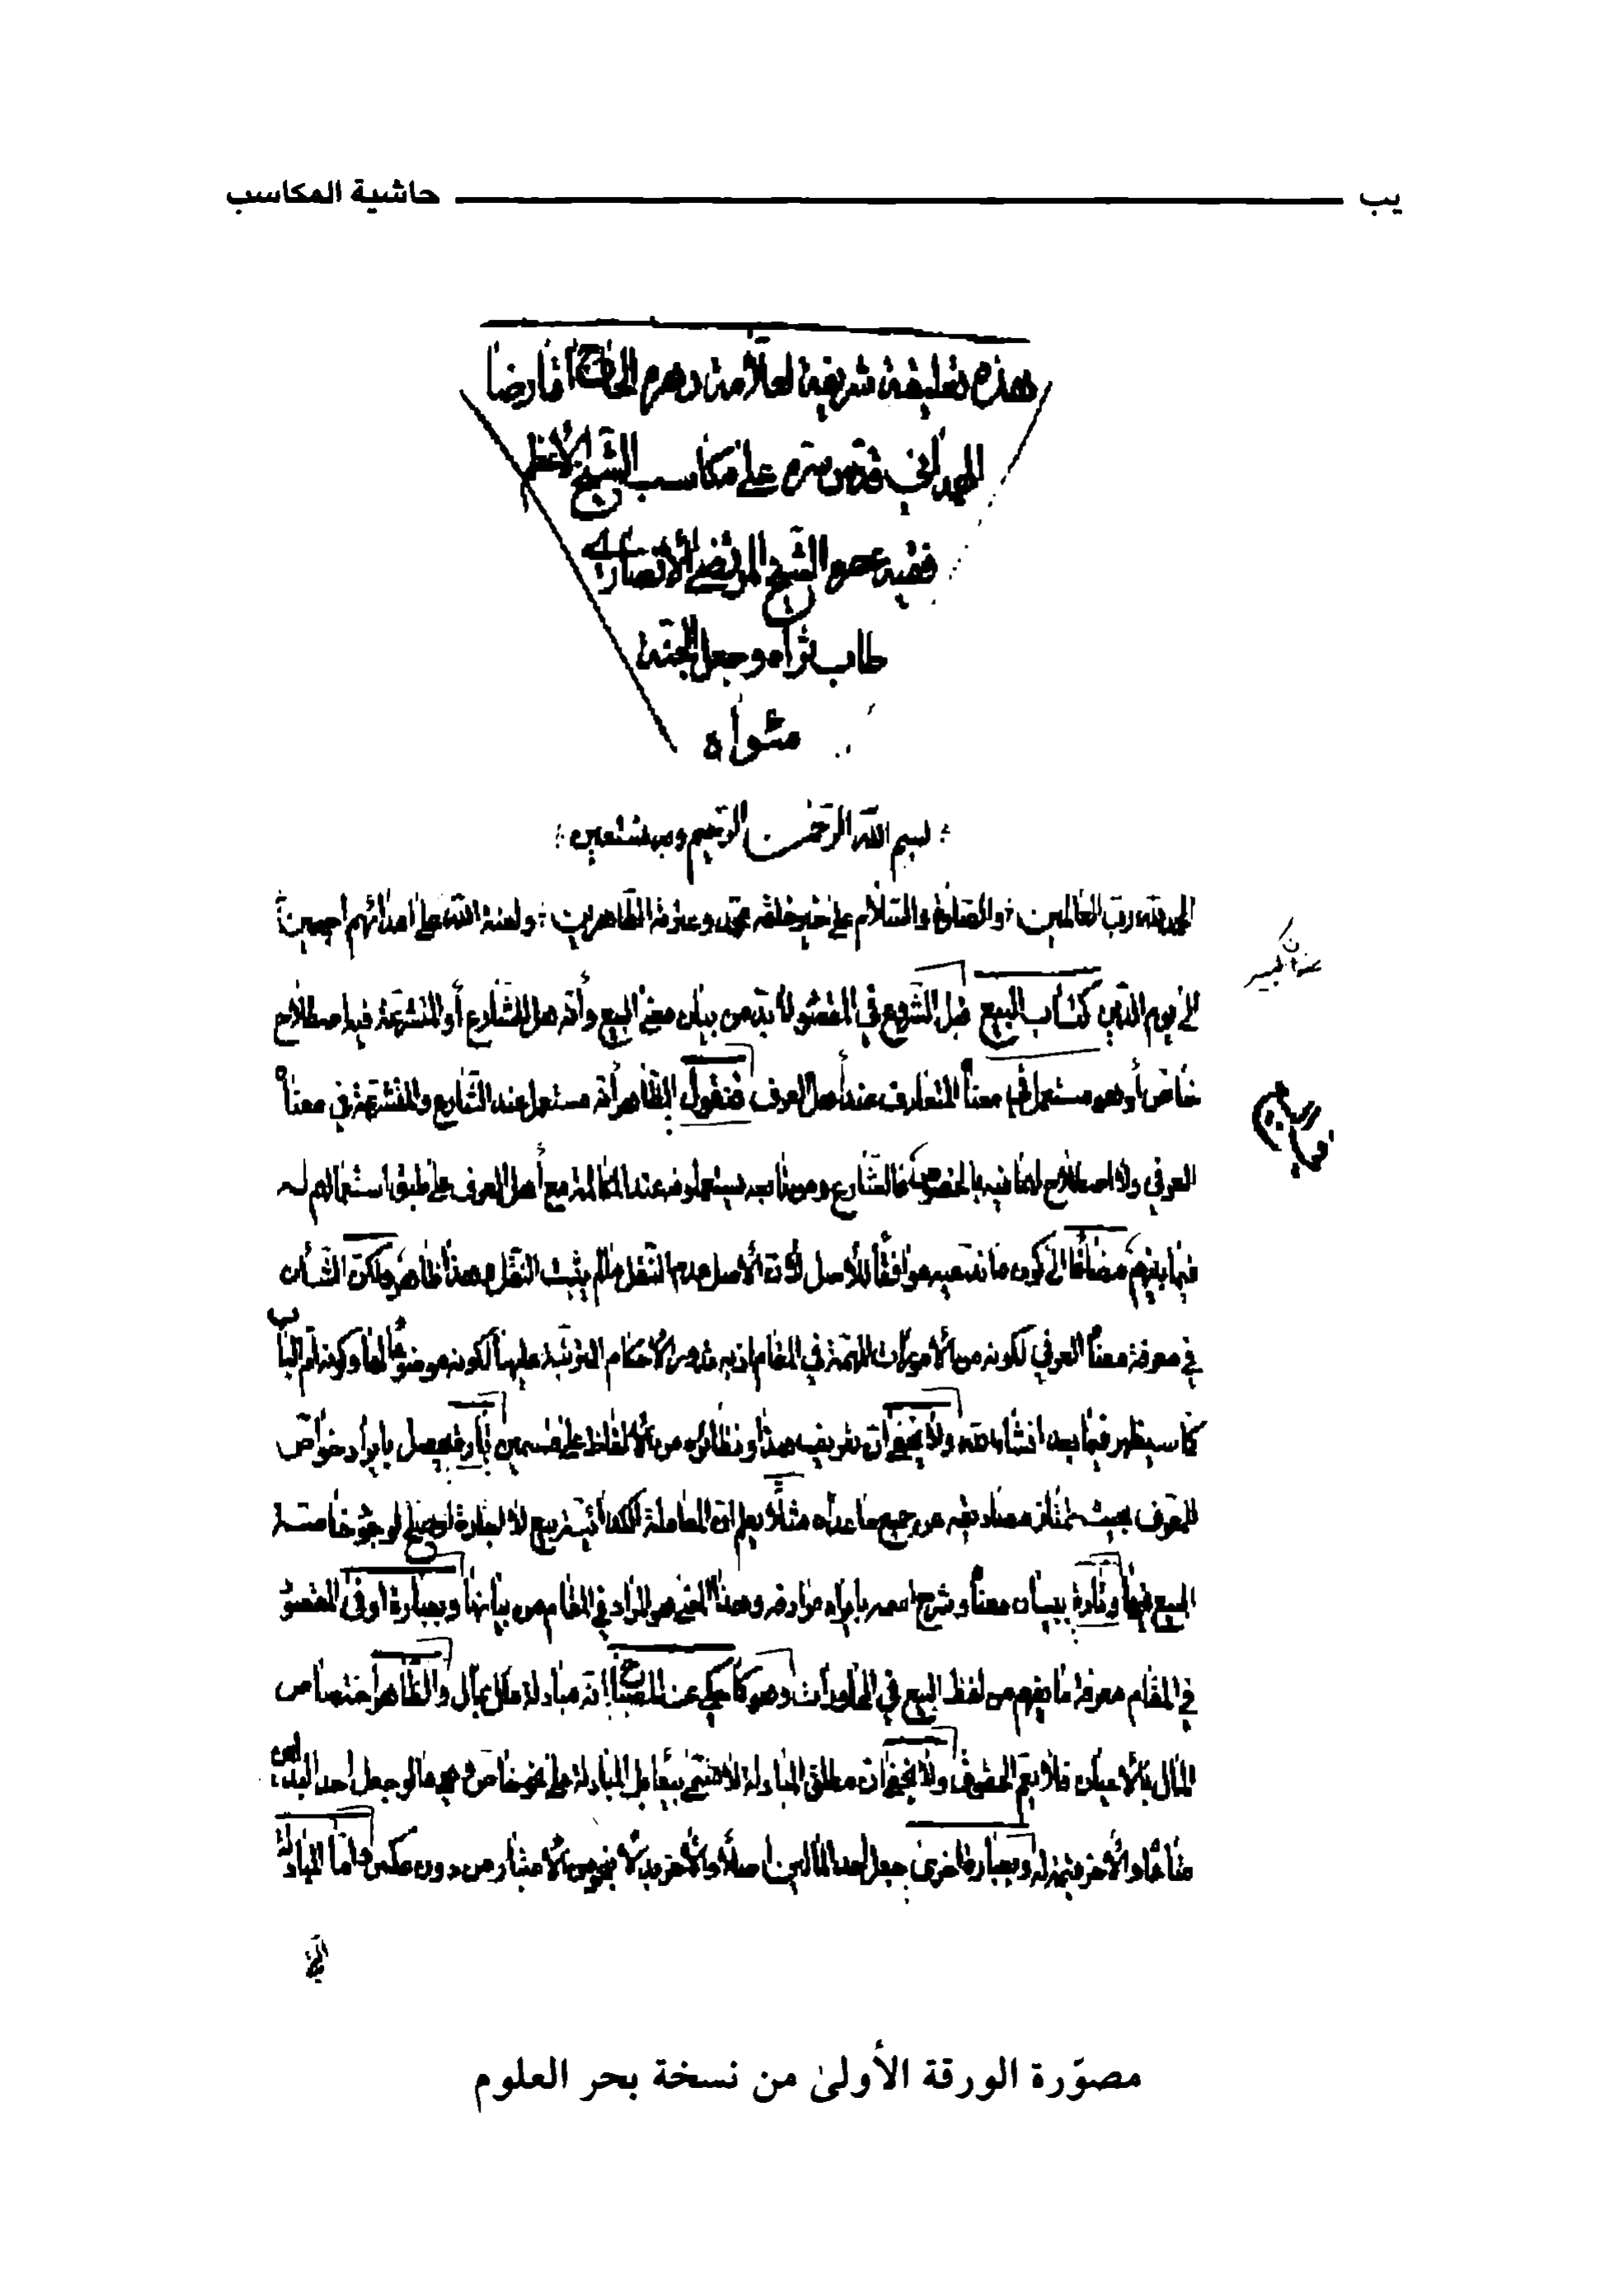 يب حاشية المكاسب
هذه تعليقة شريفة لعلّامة دهره الحاج آقا رضا
الهمداني قدّس سرّه على مكاسب الشيخ الأعظم
فقيه عصره الشيخ المرتضى الأنصاري
طاب ثراه وجعل الجنّة
مثواه
بسم اللّه الرّحمن الرّحيم وبه نستعين
الحمد للّه ربّ العالمين والصلوة والسّلام على خير خلقه محمّد وعترته الطّاهرين ولعنة اللّه على أعدائهم أجمعين
إلى يوم الدّين كتاب البيع قبل الشّروع في المقصود لا بدّ من بيان معنى البيع وأنّه هل للشّارع أو المتشرّعة فيه اصطلاح
خاصّ أو هو مستعمل في معناه المتعارف عند أهل العرف فنقول الظّاهر أنّه مستعمل عند الشّارع والمتشرّعة في معناه
العرفي ولا اصطلاح لهما فيه بالخصوص فالشّارع ومن تابعه يستعملونه عند المكالمة مع أهل العرف على طبق استعمالهم له
فيما بينهم مضافا إلى كون ما ندّعيه موافقا للأصل لأنّ الأصل عدم النّقل ما لم يثبت النّقل وهذا ظاهر ولكن الشّأن
في معرفة معناه العرفي لكونه من الأمورات المهمّة في المقام إذ به تعرف الأحكام المترتّبة عليها لكونه موضوعا لها وكونه أمّ الباب
كما سيظهر فيما بعد إنشاء اللّه ولا يخفى أنّ تعريف هذا ونظائره من الألفاظ على قسمين تارة يحصل بإيراد خواصّ
المعرّف بحيث تمتاز مصاديقه عن جميع ما عداه مثلا يعلم أنّ المعاملة الكذائيّة بيع لا إجارة أو صلح لوجود خاصّة
البيع فيها وتارة ببيان معناه وشرح اسمه بإيراد مرادفه وهذا المعنى هو المراد في المقام من بيانها وبعبارة أوفى المقصود
في المقام معرفة ما يفهم من لفظ البيع في المحاورات وهو كما حكي عن المصباح أنّه مبادلة مال بمال والظّاهر اختصاص
المال بالأعيان فلا يعمّ الحقوق ولا يخفى أنّ مطلق المبادلة لا تسمّى بيعا بل المبادلة على نحو خاصّ هو ما لو جعل أحد البدلين
مثمنا والآخر بمنزله وبعبارة أخرى جعل أحد المالين أصلا والآخر بدلا بنحو من الاعتبار من دون عكس وأمّا المبادلة
مصوّرة الورقة الأولىٰ من نسخة بحر العلوم